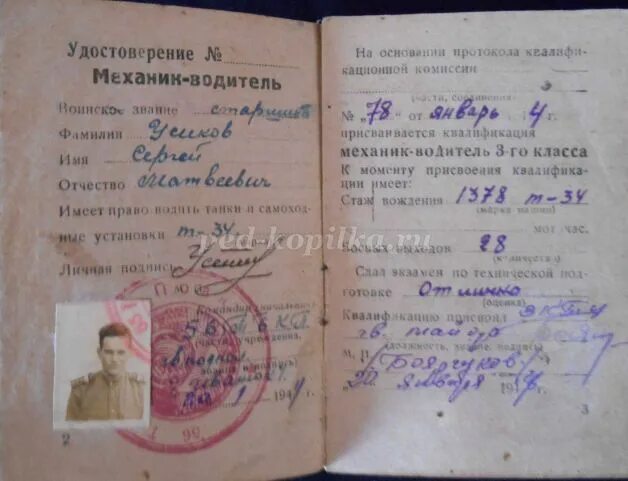 Удостоверение №
Механик-водитель
Воинское звание старшина
Фамилия Усиков
Имя Сергей
Отчество Матвеевич
Имеет право водить танки и самоход-
ные установки т-34
Личная подпись
Командир (начальник)
(часть, учреждения,
звание и подпись)
1 194 г.
2
На основании протокола квалифи-
кационной комиссии
(части, соединения)
№ "78" от январь г.
присваивается квалификация
механик-водитель 3-го класса
К моменту присвоения квалифика-
ции имеет:
Стаж вождения 1378 т-34
(марка машин)
мот час.
боевых выходов 28
(количество)
Сдал экзамен по технической под-
готовке Отлично
(оценка)
Квалификацию присвоил
гв. майор
(должность, звание, подпись)
М. П.
"20" января 194 г.
3
ped-kopilka.ru